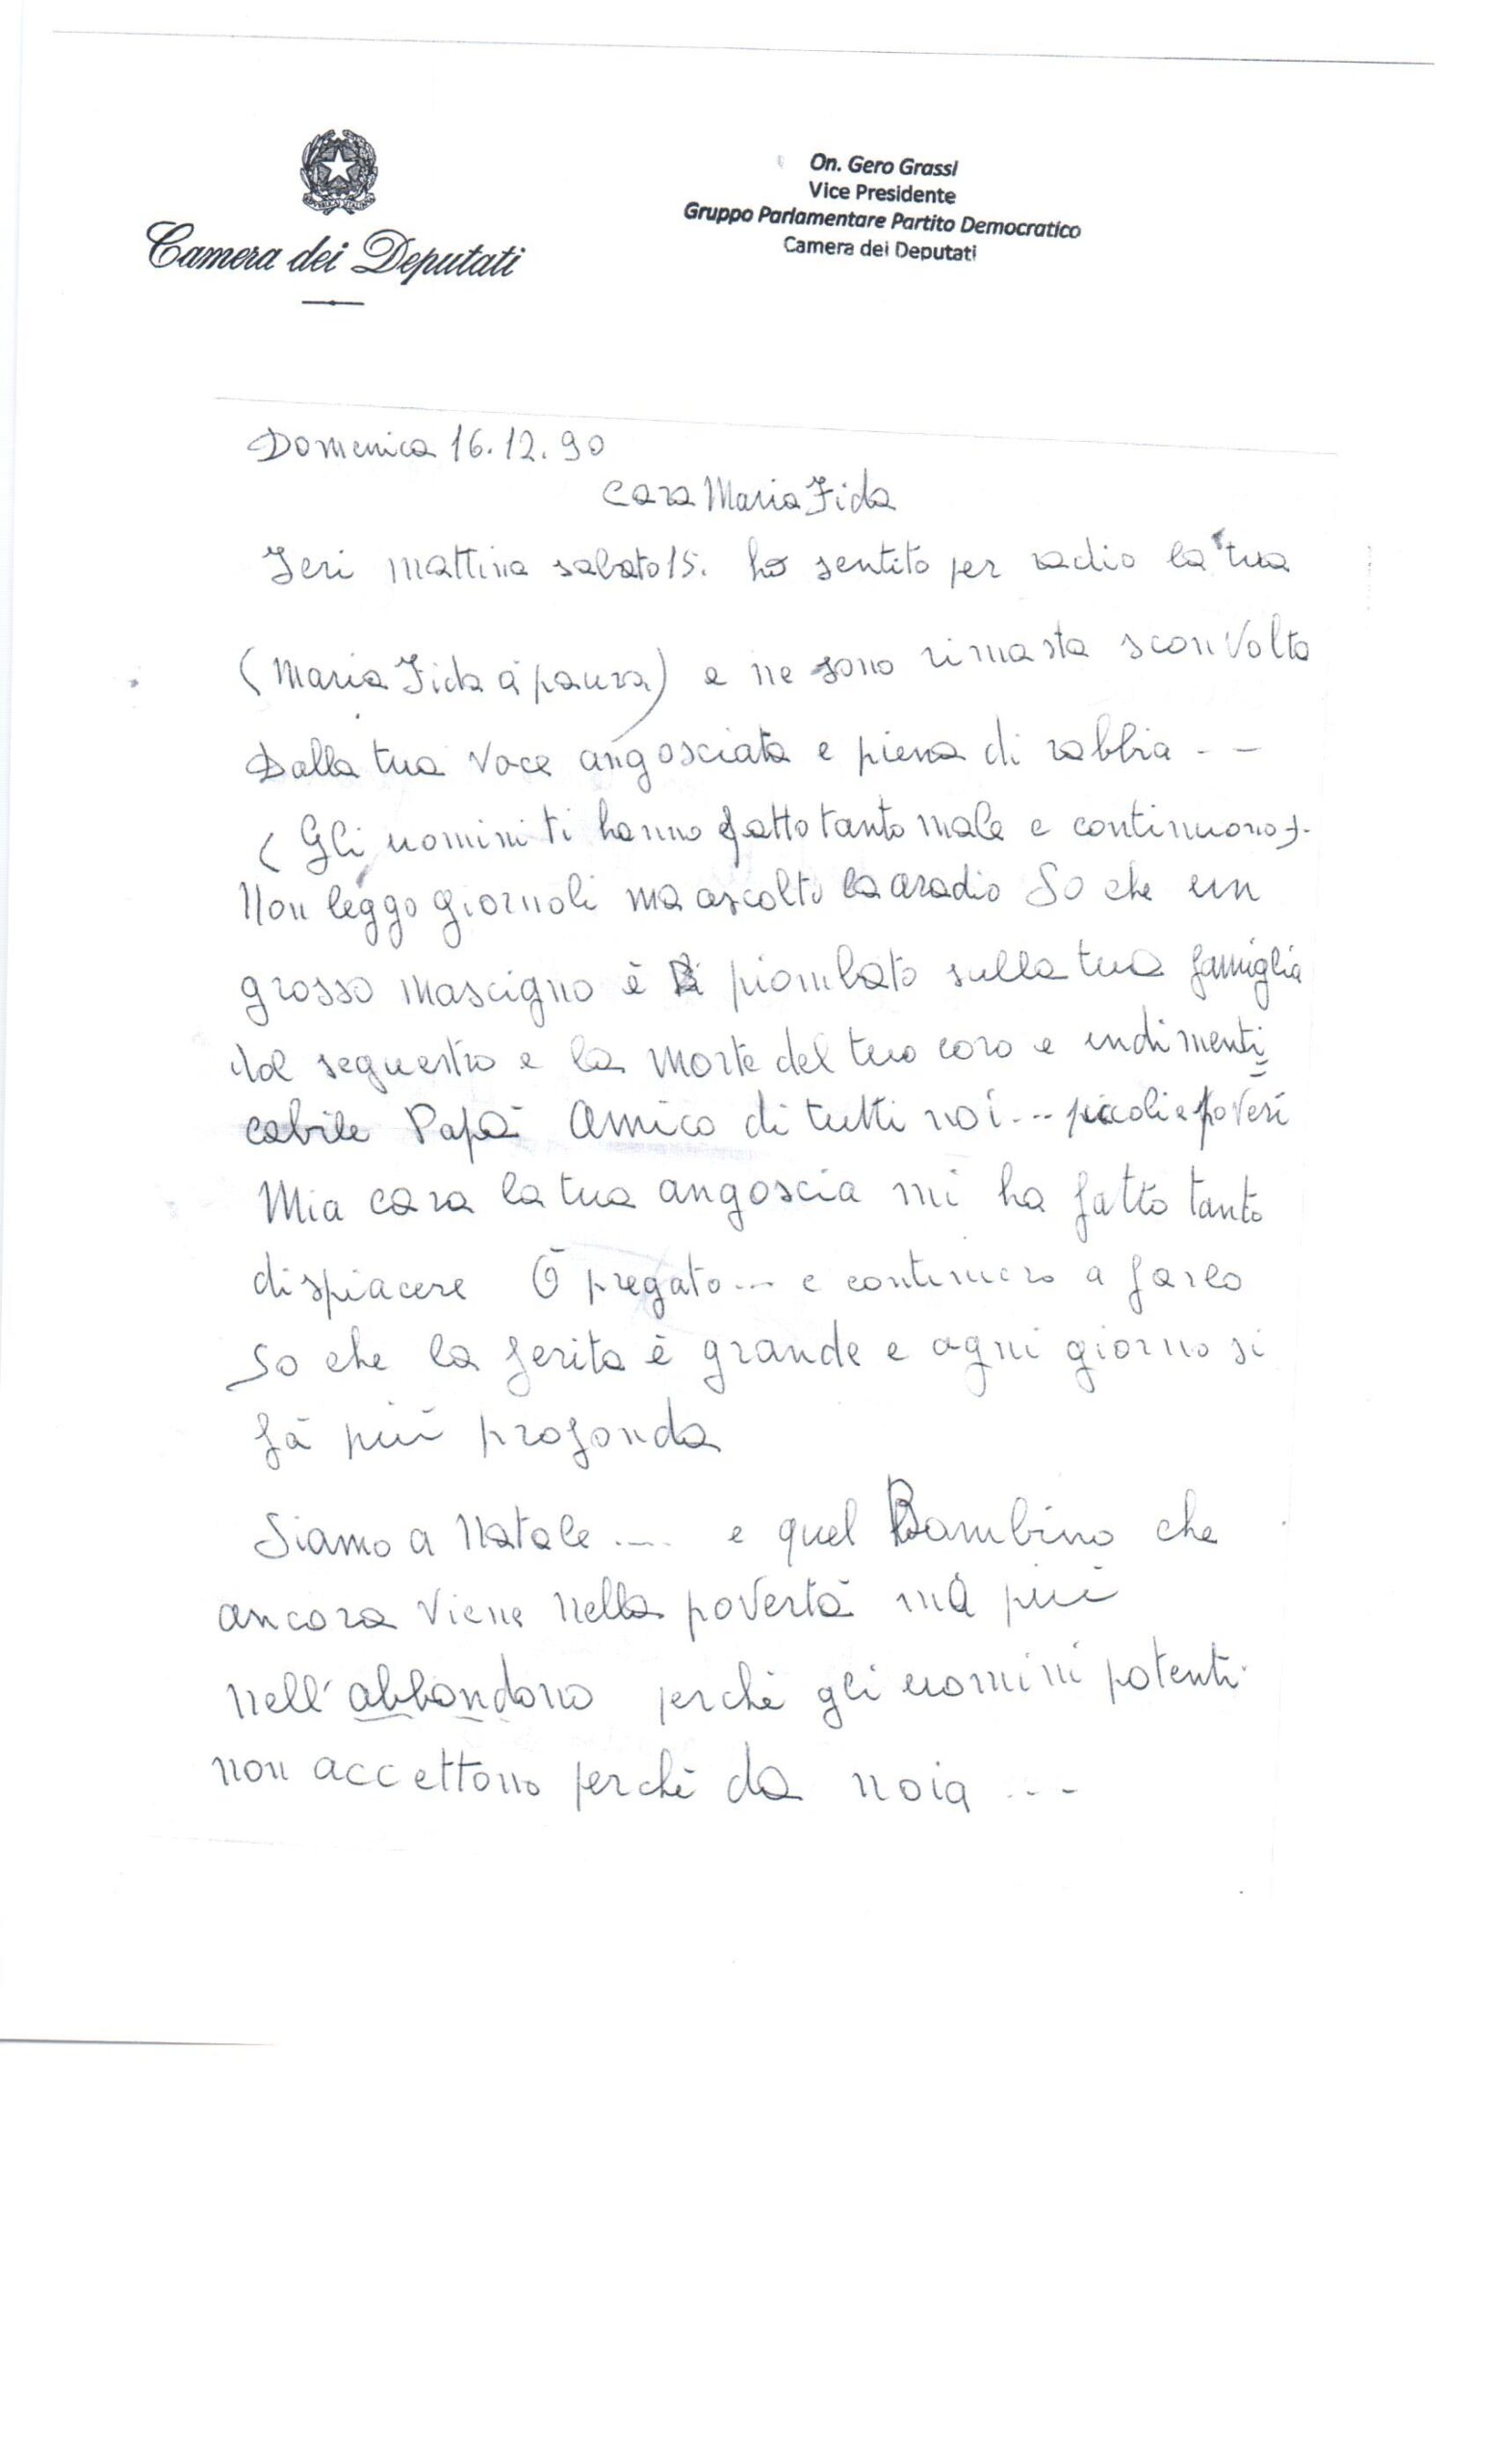 Camera dei Deputati
On. Gero Grassi
Vice Presidente
Gruppo Parlamentare Partito Democratico
Camera dei Deputati
Domenica 16.12.90
Cara Maria Fida
Ieri mattina sabato 15. ho sentito per radio la tua
(Maria Fida à paura) e ne sono rimasta sconvolta
Dalla tua voce angosciata e piena di rabbia - -
(Gli uomini ti hanno fatto tanto male e continuono).
Non leggo giornali ma ascolto la aradio So che un
grosso mascigno è piombato sulla tua famiglia
sequestro e la morte del tuo caro e indimenti
cabile Papà Amico di tutti noi... piccoli e poveri
Mia cara la tua angoscia mi ha fatto tanto
dispiacere Ò pregato... e continuero a farlo
So che la ferita è grande e ogni giorno si
fà più profonda
Siamo a Natale .... e quel Bambino che
ancora viene nella povertà mà più
nell'abbandono perchè gli uomini potenti
non accettono perchè da noia ...